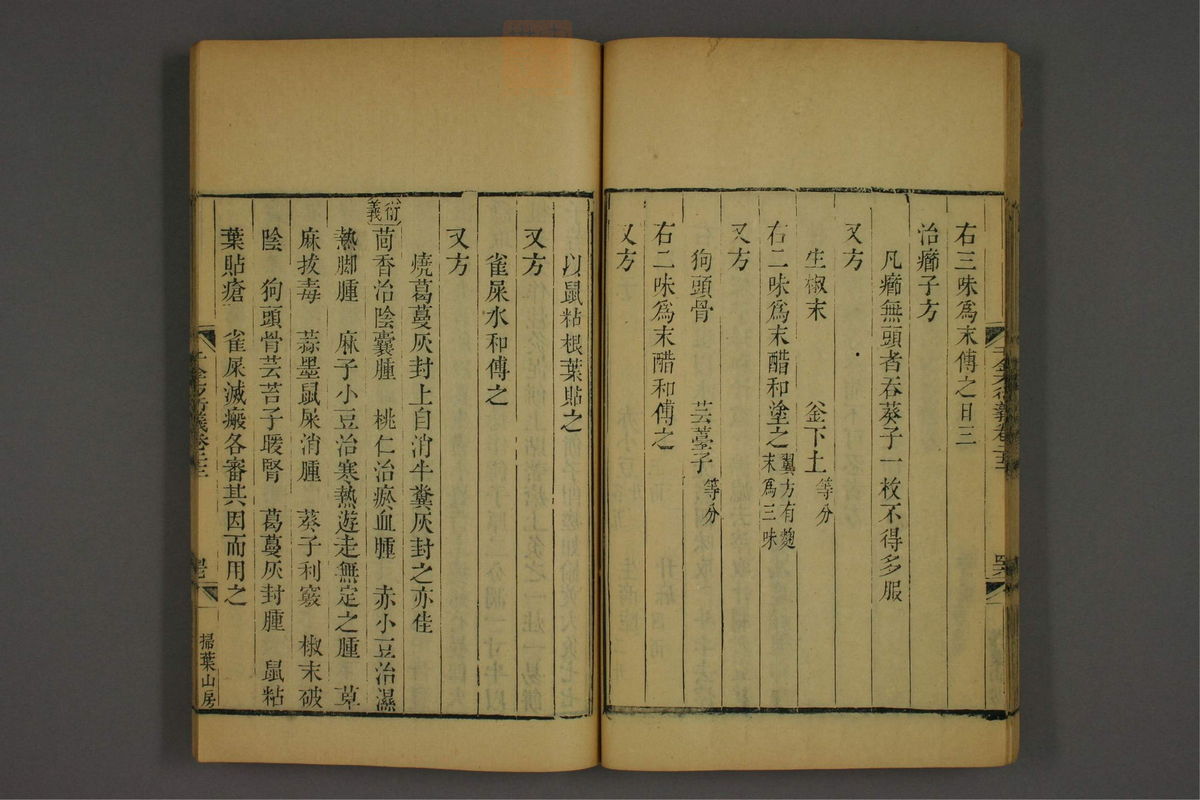 右三味爲末傅之日三
治癤子方
凡癤無頭者吞葵子一枚不得多服
又方
生椒末　釜下土等分
右二味爲末醋和塗之翼方有麴末爲三味
又方
狗頭骨　芸薹子等分
右二味爲末醋和傅之
又方
以鼠粘根葉貼之
又方
雀屎水和傅之
又方
燒葛蔓灰封上自消牛糞灰封之亦佳
衍義茴香治陰囊腫　桃仁治瘀血腫　赤小豆治濕
熱脚腫　麻子小豆治寒熱遊走無定之腫　草
麻拔毒　蒜墨鼠屎消腫　葵子利竅　椒末破
陰　狗頭骨芸苔子暖腎　葛蔓灰封腫　鼠粘
葉貼瘡　雀屎滅瘢各審其因而用之
千金方衍義卷二十二
掃葉山房